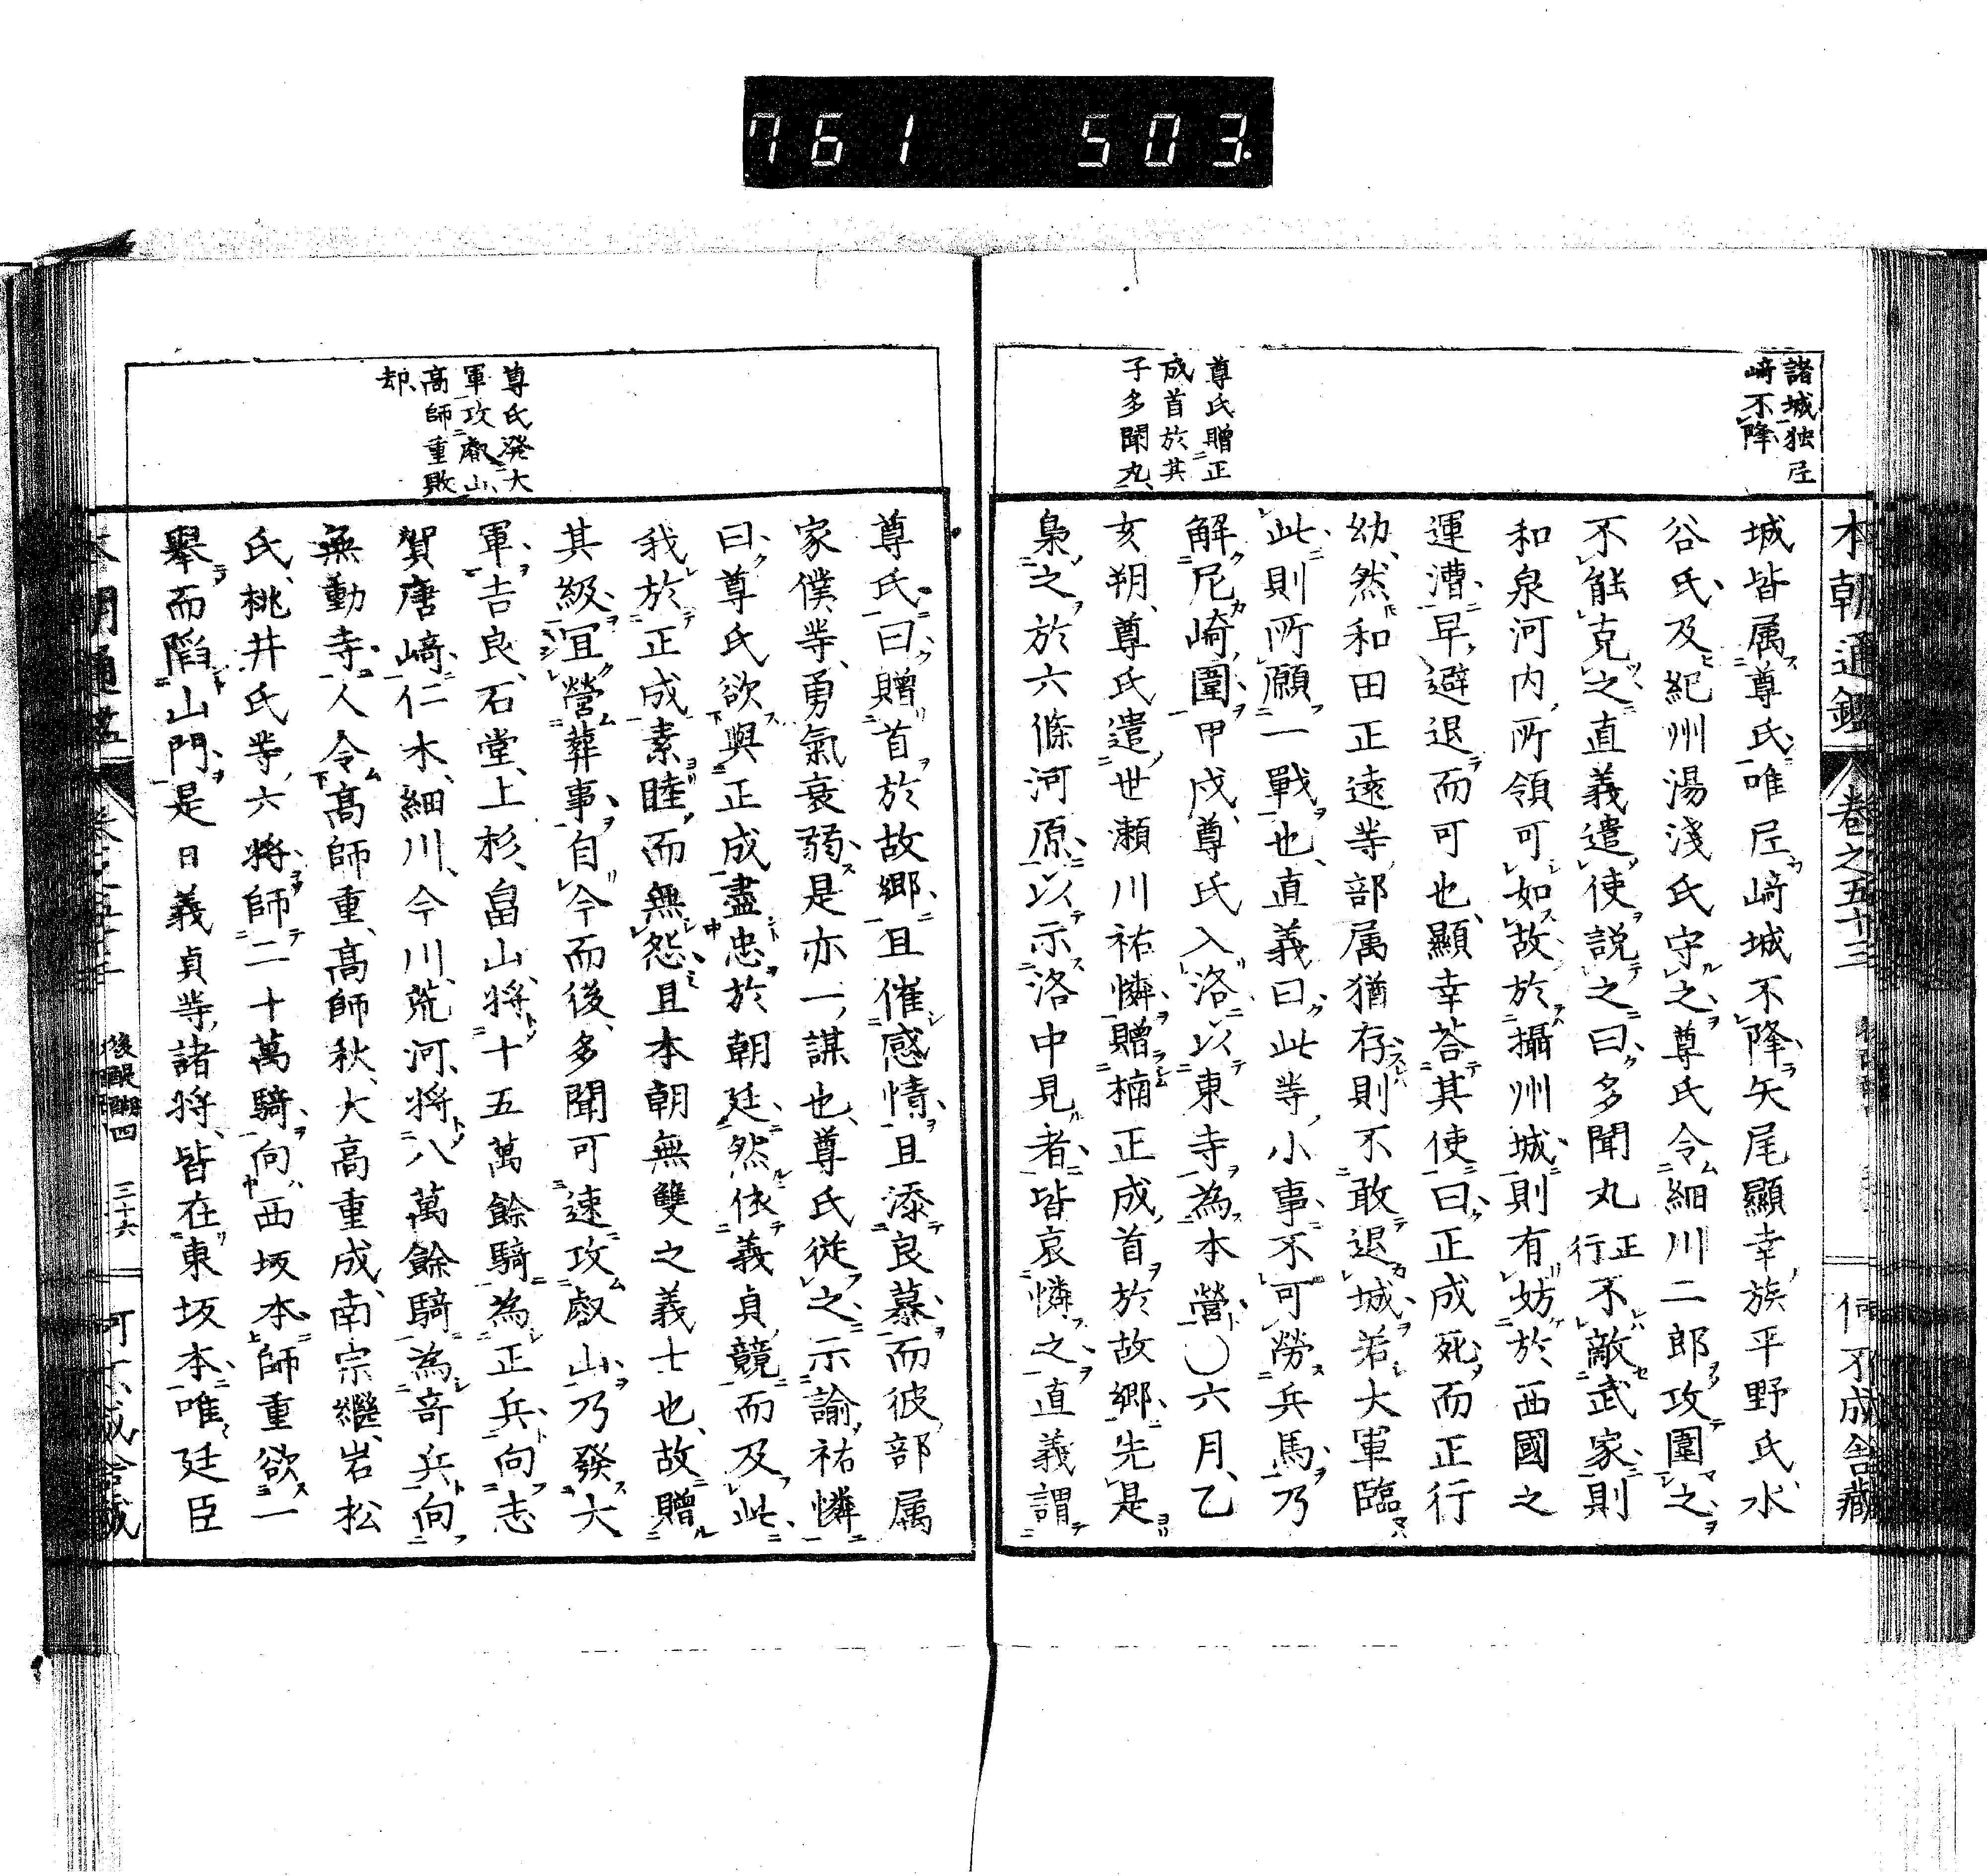 761 503.
本朝通鑑 卷之五十三 何不成舎藏
諸城独尼
﨑不降
城皆属尊氏唯尼﨑城不降矢尾顯幸族平野氏水
谷氏及紀州湯淺氏守之尊氏令細川二郎攻圍之
不能克之直義遣使説之曰多聞丸正行不敵武家則
和泉河内所領可如故於攝州城則有妨於西國之
運漕早避退而可也顯幸荅其使曰正成死而正行
幼然和田正遠等部属猶存則不敢退城若大軍臨
此則所願一戰也直義曰此等小事不可勞兵馬乃
解尼崎圍甲戌尊氏入洛以東寺為本營〇六月乙
亥朔尊氏遣世瀬川祐憐贈楠正成首於故郷先是
梟之於六條河原以示洛中見者皆哀憐之直義謂
尊氏贈正
成首於其
子多聞丸
尊氏曰贈首於故郷且催感情且添良慕而彼部属
家僕等勇氣衰弱是亦一謀也尊氏従之示諭祐憐
曰尊氏欲與正成盡忠於朝廷然依義貞競而及此
我於正成素睦而無怨且本朝無雙之義士也故贈
其級宜營葬事自今而後多聞可速攻叡山乃發大
軍吉良石堂上杉畠山将十五萬餘騎為正兵向志
賀唐﨑仁木細川今川荒河将八萬餘騎為奇兵向
無動寺人令髙師重髙師秋大高重成南宗繼岩松
氏桃井氏等六将師二十萬騎向西坂本師重欲一
舉而䧟山門是日義貞等諸将皆在東坂本唯廷臣
尊氏発大
軍攻叡山
高師重敗
却
後醍醐四 三十六